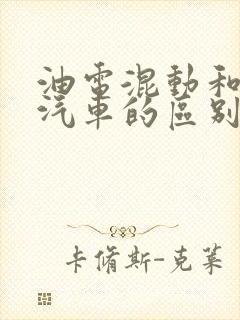 油電混動和
汽車的區别
卡脩斯-克萊